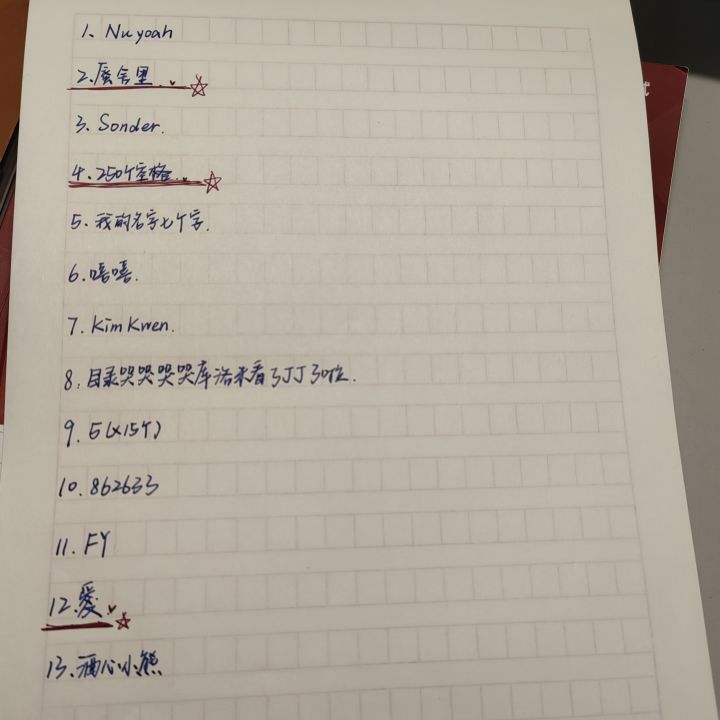 1、Nuyoah
2、蜃舍里
3、Sonder.
4、250个空格
5、我的名字七个字.
6、嘻嘻.
7、Kim Kwen.
8、目录哭哭哭哭库洛米看了JJ了啦.
9、5(×15个)
10、862633
11、FY
12、爱
13、酒心小熊